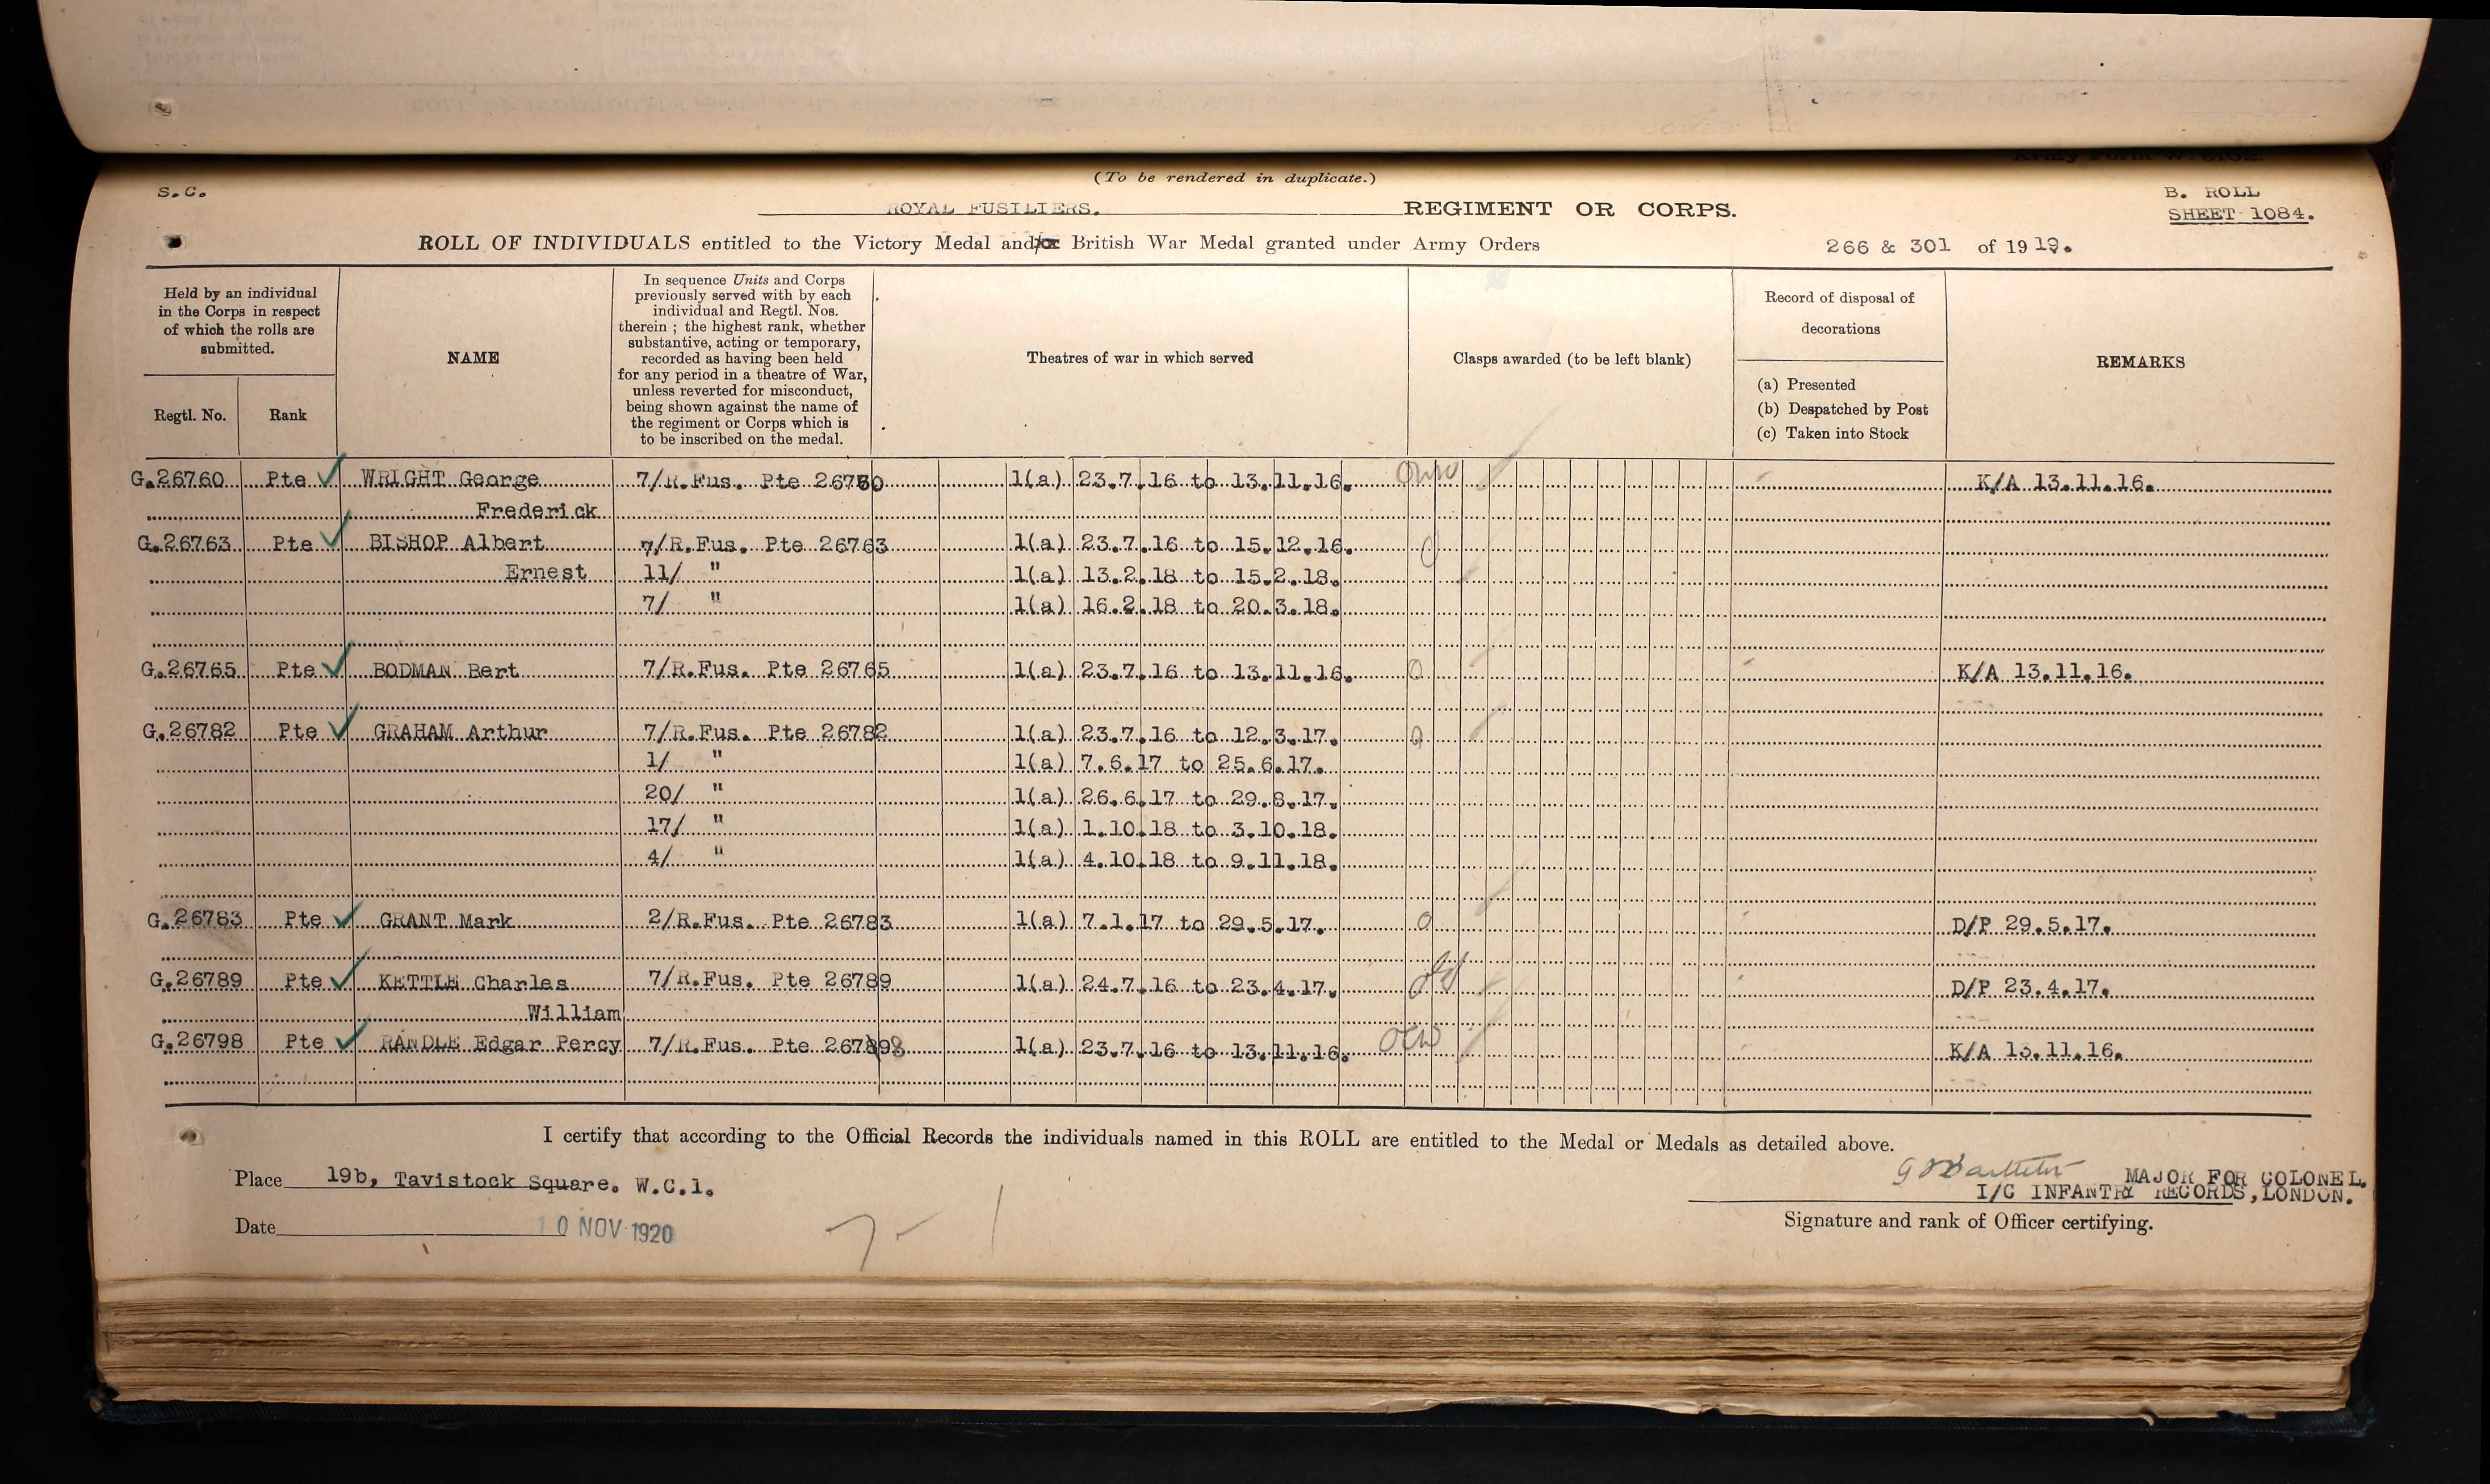 (To be rendered in duplicate.)
S.C.
B. ROLL
ROYAL FUSILIERS. REGIMENT OR CORPS.
SHEET 1084.
ROLL OF INDIVIDUALS entitled to the Victory Medal and/or British War Medal granted under Army Orders 266 & 301 of 1919.
Held by an individual
in the Corps in respect
of which the rolls are
submitted.
Regtl. No. Rank
NAME
In sequence Units and Corps
previously served with by each
individual and Regtl. Nos.
therein ; the highest rank, whether
substantive, acting or temporary,
recorded as having been held
for any period in a theatre of War,
unless reverted for misconduct,
being shown against the name of
the regiment or Corps which is
to be inscribed on the medal.
Theatres of war in which served
Clasps awarded (to be left blank)
Record of disposal of
decorations
(a) Presented
(b) Despatched by Post
(c) Taken into Stock
REMARKS
G.26760 Pte WRIGHT George 7/R.Fus. Pte 26760 1(a) 23.7.16 to 13.11.16. K/A 13.11.16.
Frederick
G.26763 Pte BISHOP Albert 7/R.Fus. Pte 26763 1(a) 23.7.16 to 15.12.16.
Ernest 11/ " 1(a) 13.2.18 to 15.2.18.
7/ " 1(a) 16.2.18 to 20.3.18.
G.26765 Pte BODMAN Bert 7/R.Fus. Pte 26765 1(a) 23.7.16 to 13.11.16. O K/A 13.11.16.
G.26782 Pte GRAHAM Arthur 7/R.Fus. Pte 26782 1(a) 23.7.16 to 12.3.17. O
1/ " 1(a) 7.6.17 to 25.6.17.
20/ " 1(a) 26.6.17 to 29.8.17.
17/ " 1(a) 1.10.18 to 3.10.18.
4/ " 1(a) 4.10.18 to 9.11.18.
G.26783 Pte GRANT Mark 2/R.Fus. Pte 26783 1(a) 7.1.17 to 29.5.17. O D/P 29.5.17.
G.26789 Pte KETTLE Charles 7/R.Fus. Pte 26789 1(a) 24.7.16 to 23.4.17. D/P 23.4.17.
William
G.26798 Pte RANDLE Edgar Percy 7/R.Fus. Pte 26798 1(a) 23.7.16 to 13.11.16. K/A 13.11.16.
I certify that according to the Official Records the individuals named in this ROLL are entitled to the Medal or Medals as detailed above.
Place 19b, Tavistock Square. W.C.1.
MAJOR FOR COLONEL.
I/C INFANTRY RECORDS, LONDON.
Date 10 NOV 1920
Signature and rank of Officer certifying.